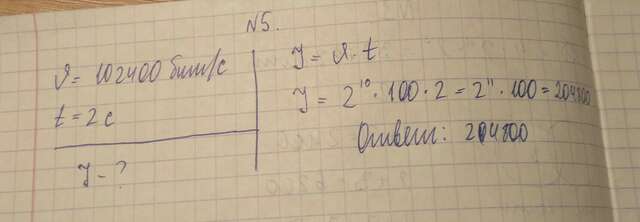 №5.
𝒱 = 102400 бит/с
t = 2 с
J - ?
J = 𝒱 · t
J = 2¹⁰ · 100 · 2 = 2¹¹ · 100 = 204800
Ответ: 204800